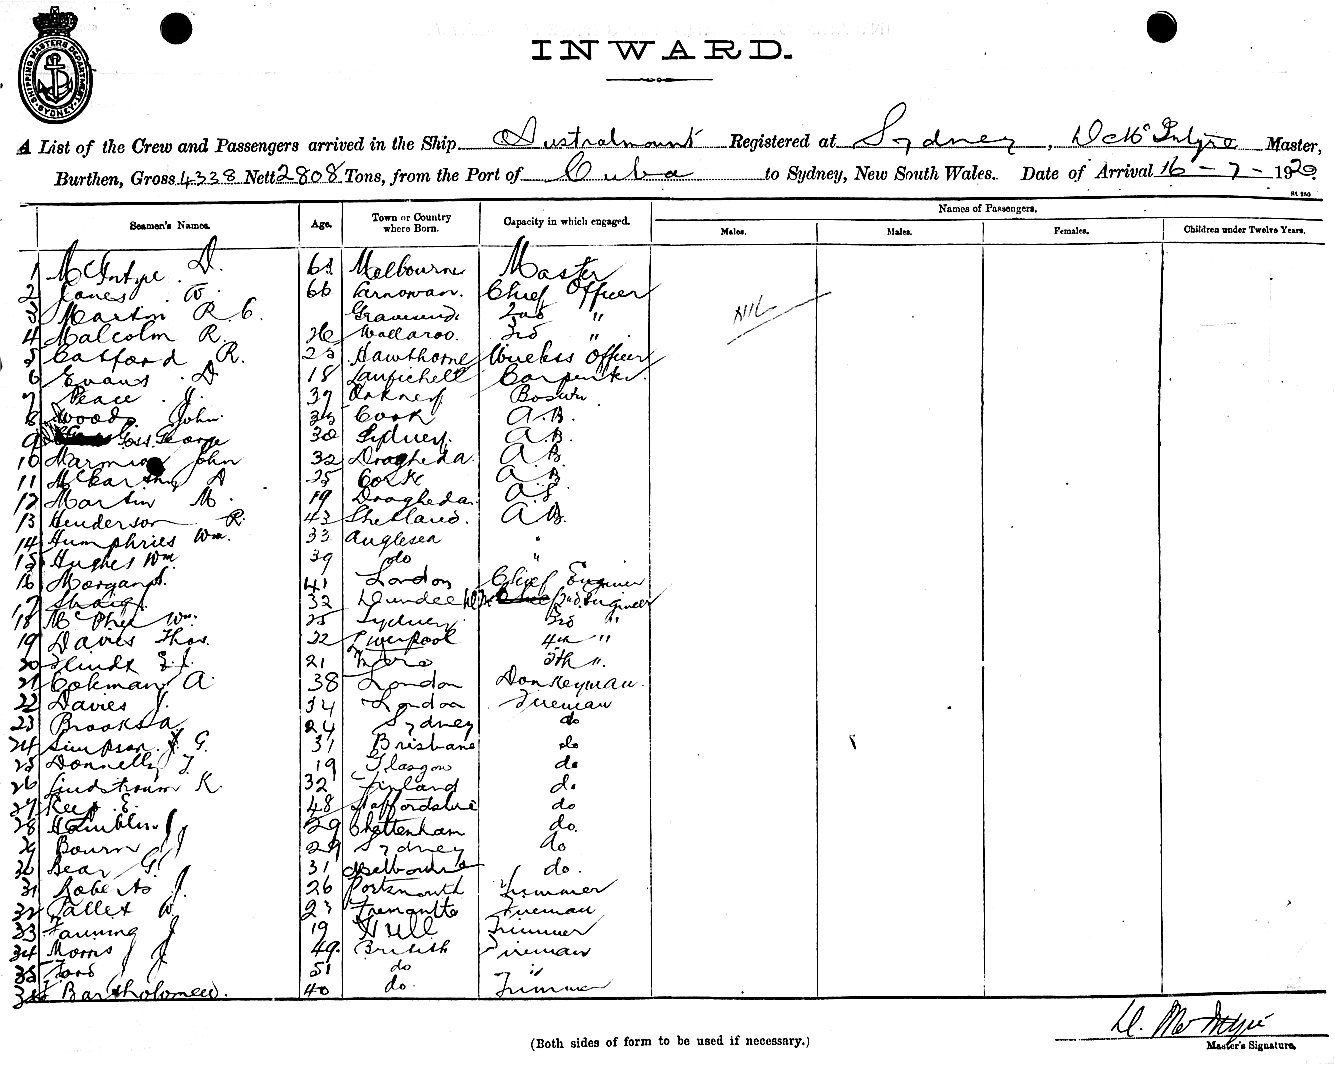 SHIPPING MASTERS DEPARTMENT SYDNEY
INWARD.
A List of the Crew and Passengers arrived in the Ship Australmount Registered at Sydney, D McIntyre Master,
Burthen, Gross 4338 Nett 2808 Tons, from the Port of Cuba to Sydney, New South Wales. Date of Arrival 16-7-1920
Seamen's Names. Age. Town or Country where Born. Capacity in which engaged. Names of Passengers.
Males. Males. Females. Children under Twelve Years.
1 McIntyre D. 61 Melbourne Master
2 James W. 66 Chief Officer
3 Martin R C. Gravesend 2nd "
4 Malcolm R. 26 Wallaroo. 3rd "
5 R. 23 Hawthorne Wireless Officer
6 Evans D 18 Carpenter
7 Peace J. 39 Orkney Bosun
8 Woods John 35 Cork A.B.
9 Goss George 30 Sydney. A.B.
10 John 32 Drogheda A.B.
11 McCarthy A 25 Cork A.B.
12 Martin M. 19 Drogheda. O.S.
13 Henderson R. 43 Shetland. A.B.
14 Humphries Wm. 33 Anglesea "
15 Hughes Wm 39 do "
16 Morgan 41 London Chief Engineer
17 32 Dundee 2nd Engineer
18 McPhee Wm. 25 Sydney 3rd "
19 Davies Thos. 22 Liverpool 4th "
20 21 5th "
21 A. 38 London Donkeyman.
22 Davies J. 34 London Fireman
23 Brooks A 24 Sydney do
24 Simpson J G. 31 Brisbane do
25 Donnelly J 19 Glasgow do
26 Lindstrom K. 32 Finland do
27 E. 48 Staffordshire do
28 J 29 Cheltenham do.
29 Bourn J 29 Sydney do
30 Bear G. 31 Melbourne do.
31 Roberts J. 26 Portsmouth Trimmer
32 W. 23 Fremantle Fireman
33 Fanning J 19 Hull Trimmer
34 Morris J 49 British Fireman
35 Ford J 51 do "
36 Bartholomew. 40 do. Trimmer
NIL
D. McIntyre
Master's Signature.
(Both sides of form to be used if necessary.)